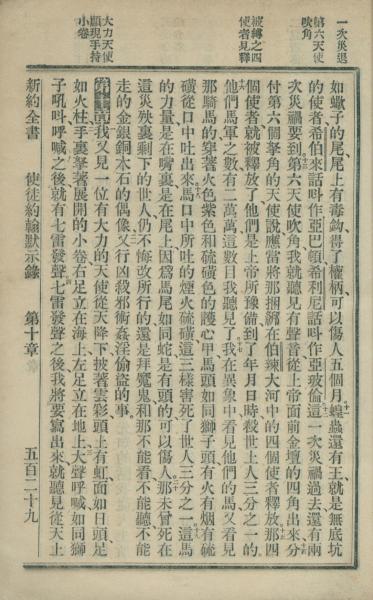 一次災退
第六天使
吹角
被縛之四
使者見釋
大力天使
顯現手持
小卷
如蠍子的尾尾上有毒鈎得了權柄可以傷人五個月蝗蟲還有王就是無底坑
的使者希伯來話呌作亞巴頓希利尼話呌作亞玻倫這一次災禍過去還有兩
次災禍要到第六天使吹角我就聽見有聲音從上帝面前金壇的四角出來分
付第六個拏角的天使說應當將那捆綁在伯辣大河中的四個使者釋放那四
個使者就被釋放了他們是上帝所豫備到了年月日時殺世上人三分之一的
他們馬軍之數有二萬萬這數目我聽見了我在異象中看見他們的馬又看見
那騎馬的穿著火色紫色和硫磺色的護心甲馬頭如同獅子頭有火有烟有硫
磺從口中吐出來馬口中所吐的煙火硫磺這三樣害死了世人三分之一這馬
的力量是在嘴裏是在尾上因爲馬尾如同蛇是有頭的可以傷人那未曾死在
這災殃裏剩下的世人仍不悔改所行的還是拜魔鬼和那不能看不能聽不能
走的金銀銅木石的偶像又行凶殺邪術姦淫偷盜的事
第十章我又見一位有大力的天使從天降下披著雲彩頭上有虹面如日頭足
如火柱手裏拏著展開的小卷右足立在海上左足立在地上大聲呼喊如同獅
子吼呌呼喊之後就有七雷發聲七雷發聲之後我將要寫出來就聽見從天上
新約全書 使徒約翰默示錄 第十章 五百二十九